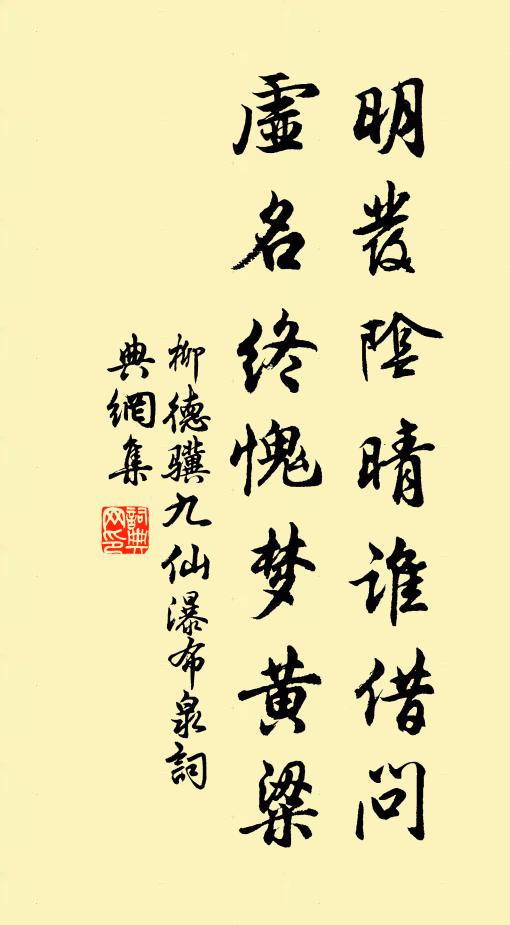 明发陰晴谁借问
虛名终愧梦黄粱
柳德骥九仙瀑布泉詞
典網集
詞典
网印